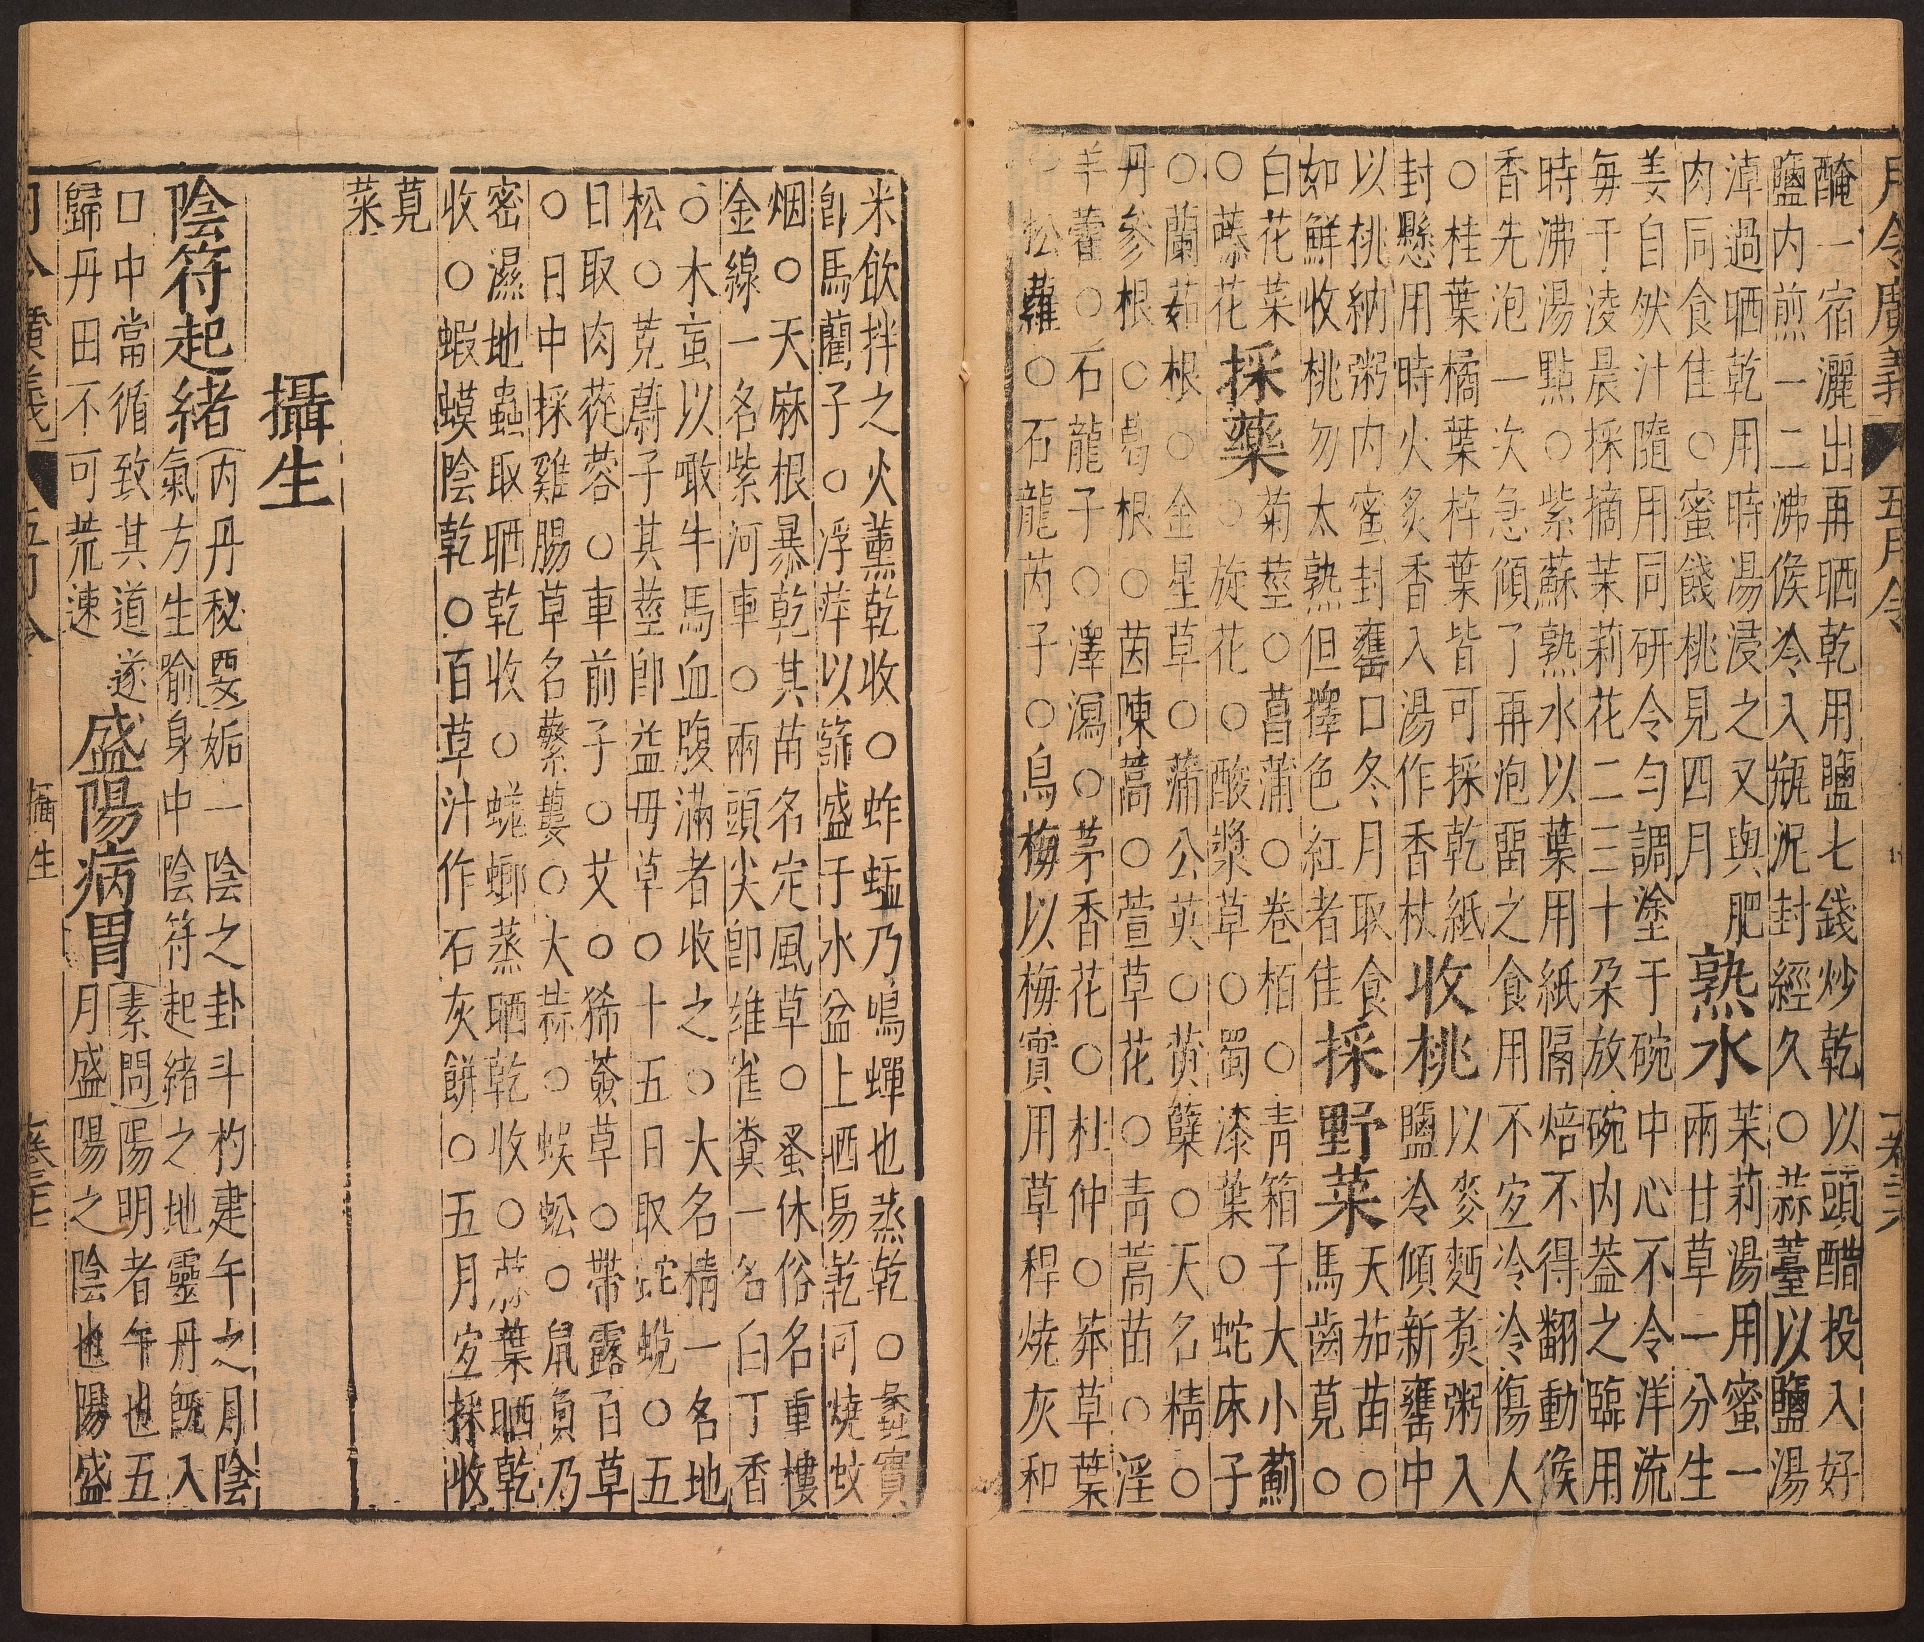 月令廣義 五月令
醃一宿灑出再晒乾用鹽七錢炒乾以頭醋投入好
鹽內煎一二沸候冷入瓶泥封經久○蒜薹以鹽湯
淖過晒乾用時湯浸之又與肥
肉同食佳○蜜餞桃見四月
熟水
茉莉湯用蜜一
兩甘草一分生
姜自然汁隨用同研令勻調塗于碗中心不令洋流
每于凌晨採摘茉莉花二三十朶放碗內葢之臨用
時沸湯點○紫蘇熟水以葉用紙隔焙不得翻動候
香先泡一次急傾了再泡畱之食用不宐冷冷傷人
○桂葉橘葉梓葉皆可採乾紙
封懸用時火炙香入湯作香杖
收桃
以麥麪煑粥入
鹽冷傾新罋中
以桃納粥內蜜封罋口冬月取食
如鮮收桃勿太熟但擇色紅者佳
採野菜
天茄苗○
馬齒莧○
白花菜
○藤花
採藥
菊莖○菖蒲○卷栢○青箱子大小薊
○旋花○酸漿草○蜀漆葉○蛇床子
○蘭茹根○金星草○蒲公英○黄蘗○天名精○
丹參根○葛根○茵陳蒿○萱草花○青蒿苗○淫
羊藿○石龍子○澤瀉○茅香花○杜仲○莽草葉
○松蘿○石龍芮子○烏梅以梅實用草稈燒灰和
米飲拌之火薰乾收○蚱蜢乃鳴蟬也蒸乾○蠡實
卽馬藺子○浮萍以篩盛于水盆上晒易乾可燒蚊
烟○天麻根暴乾其苗名定風草○蚤休俗名重樓
金線一名紫河車○兩頭尖卽雄雀糞一名白丁香
○木䖟以噉牛馬血腹滿者收之○大名精一名地
松○茺蔚子其莖卽益毋草○十五日取蛇蛻○五
日取肉蓯蓉○車前子○艾○豨薟草○帶露百草
○日中採雞腸草名蘩蔞○大蒜○蜈蚣○鼠負乃
密濕地蟲取晒乾收○蜣螂蒸晒乾收○葉晒乾
收○蝦蟆陰乾○百草汁作石灰餅○五月宐採收
莧
菜
攝生
陰符起緒
內丹秘要姤一陰之卦斗杓建午之月陰
氣方生喻身中陰符起緒之地靈丹旣入
口中當循致其道遂
歸丹田不可荒速
盛陽病胃
素問陽明者午也五
月盛陽之陰也陽盛
月令廣義 五月令 攝生